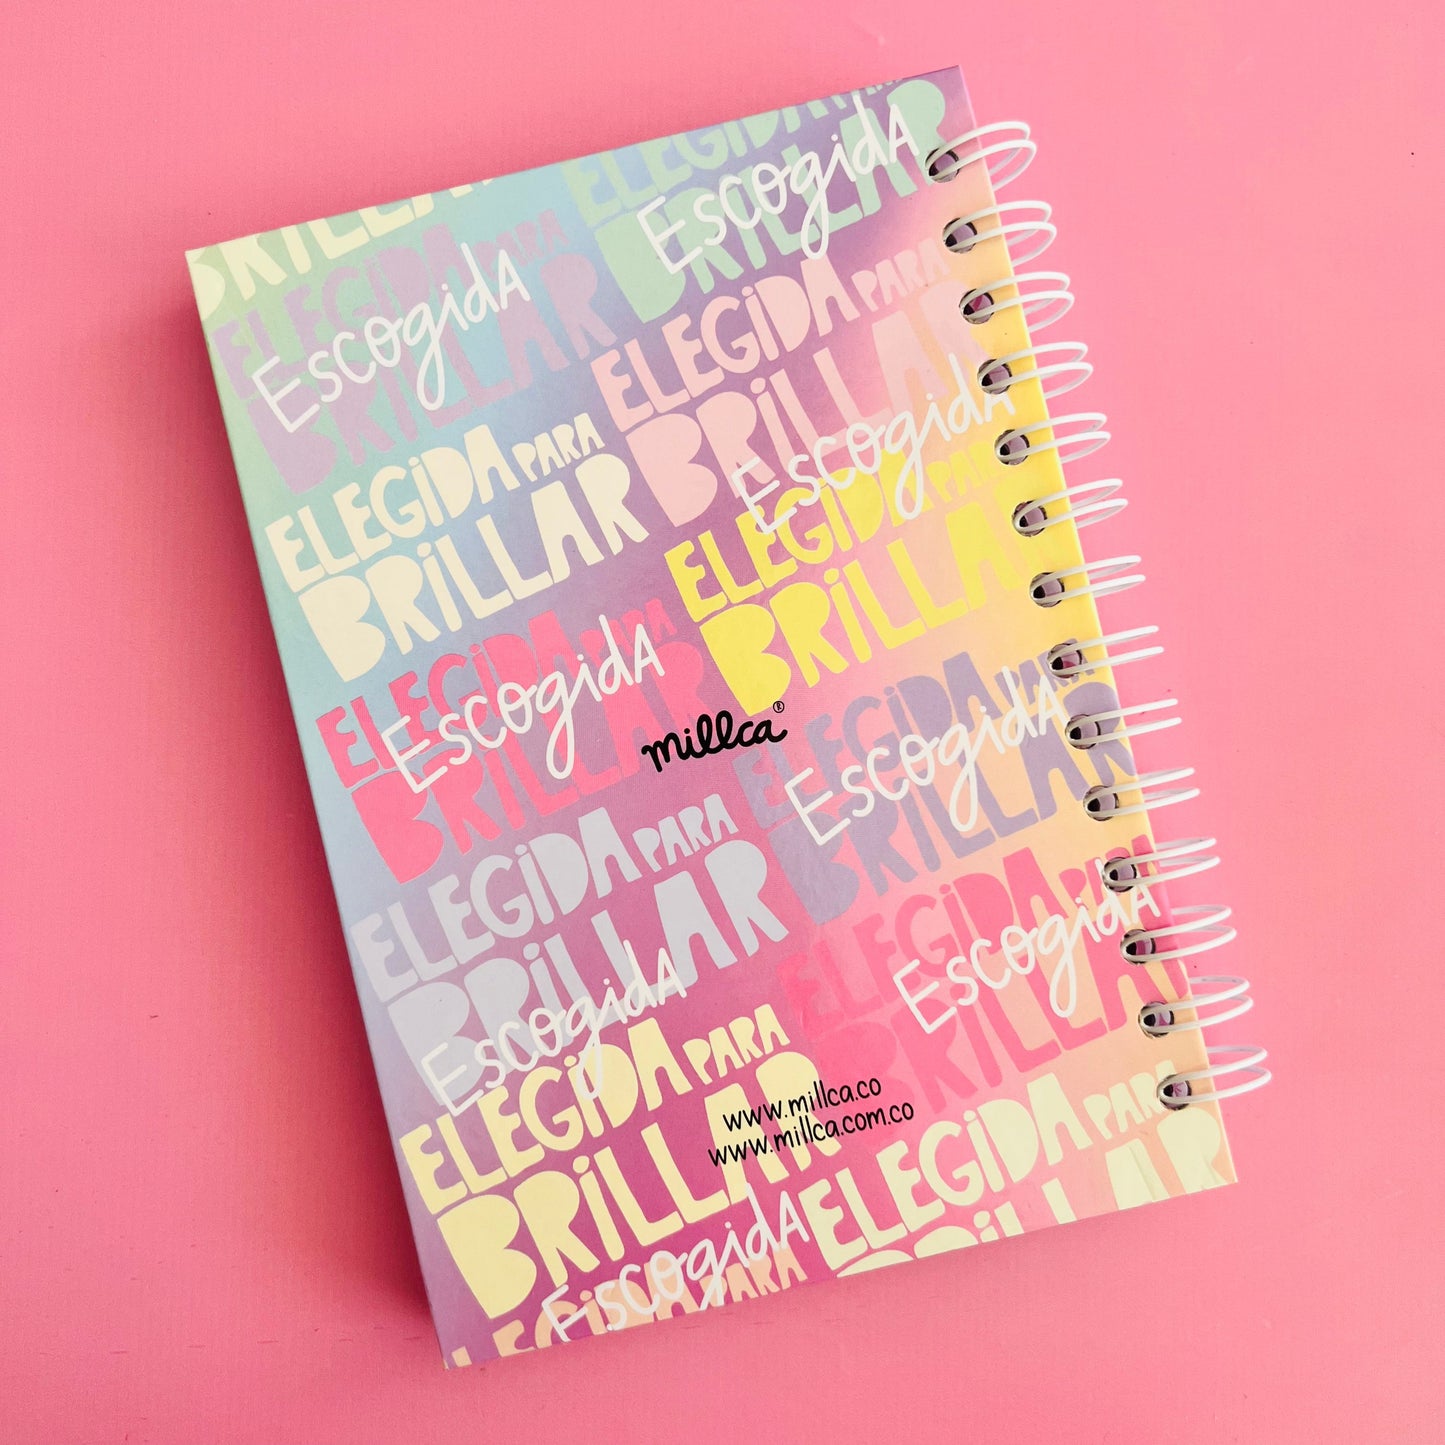 BRILLAR
ELEGIDA PARA
BRILLAR
Escogida
ELEGIDA PARA
BRILLAR
Escogida
ELEGIDA PARA
BRILLAR
ELEGIDA PARA
BRILLAR
Escogida
ELEGIDA PARA
BRILLAR
ELEGIDA PARA
BRILLAR
Escogida
millca®
ELEGIDA PARA
BRILLAR
Escogida
ELEGIDA PARA
BRILLAR
Escogida
ELEGIDA PARA
BRILLAR
Escogida
ELEGIDA PARA
BRILLAR
www.millca.co
www.millca.com.co
ELEGIDA PARA
BRILLAR
Escogida
ELEGIDA PARA